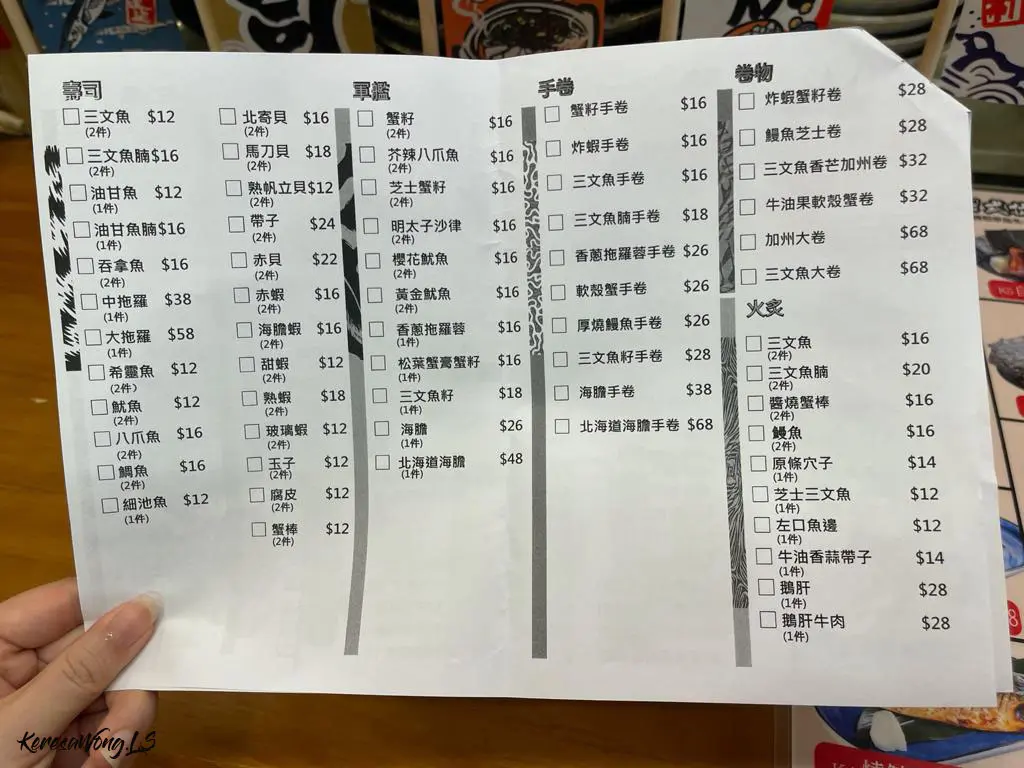 壽司
三文魚 $12
(2件)
三文魚腩$16
(2件)
油甘魚 $12
(1件)
油甘魚腩$16
(1件)
吞拿魚 $16
(2件)
中拖羅 $38
(1件)
大拖羅 $58
(1件)
希靈魚 $12
(2件)
魷魚 $12
(2件)
八爪魚 $16
(2件)
鯛魚 $16
(2件)
細池魚 $12
(1件)
北寄貝 $16
(2件)
馬刀貝 $18
(2件)
熟帆立貝$12
(2件)
帶子 $24
(2件)
赤貝 $22
(2件)
赤蝦 $16
(2件)
海膽蝦 $16
(2件)
甜蝦 $12
(2件)
熟蝦 $18
(2件)
玻璃蝦 $12
(2件)
玉子 $12
(2件)
腐皮 $12
(2件)
蟹棒 $12
(2件)
軍艦
蟹籽 $16
(2件)
芥辣八爪魚 $16
(2件)
芝士蟹籽 $16
(2件)
明太子沙律 $16
(2件)
櫻花魷魚 $16
(2件)
黃金魷魚 $16
(2件)
香蔥拖羅蓉 $16
(1件)
松葉蟹膏蟹籽 $16
(1件)
三文魚籽 $18
(1件)
海膽 $26
(1件)
北海道海膽 $48
(1件)
手卷
蟹籽手卷 $16
炸蝦手卷 $16
三文魚手卷 $16
三文魚腩手卷 $18
香蔥拖羅蓉手卷 $26
軟殼蟹手卷 $26
厚燒鰻魚手卷 $26
三文魚籽手卷 $28
海膽手卷 $38
北海道海膽手卷 $68
卷物
炸蝦蟹籽卷 $28
鰻魚芝士卷 $28
三文魚香芒加州卷 $32
牛油果軟殼蟹卷 $32
加州大卷 $68
三文魚大卷 $68
火炙
三文魚 $16
(2件)
三文魚腩 $20
(2件)
醬燒蟹棒 $16
(2件)
鰻魚 $16
(2件)
原條穴子 $14
(1件)
芝士三文魚 $12
(1件)
左口魚邊 $12
(1件)
牛油香蒜帶子 $14
(1件)
鵝肝 $28
(1件)
鵝肝牛肉 $28
(1件)
KeresaWong.LS